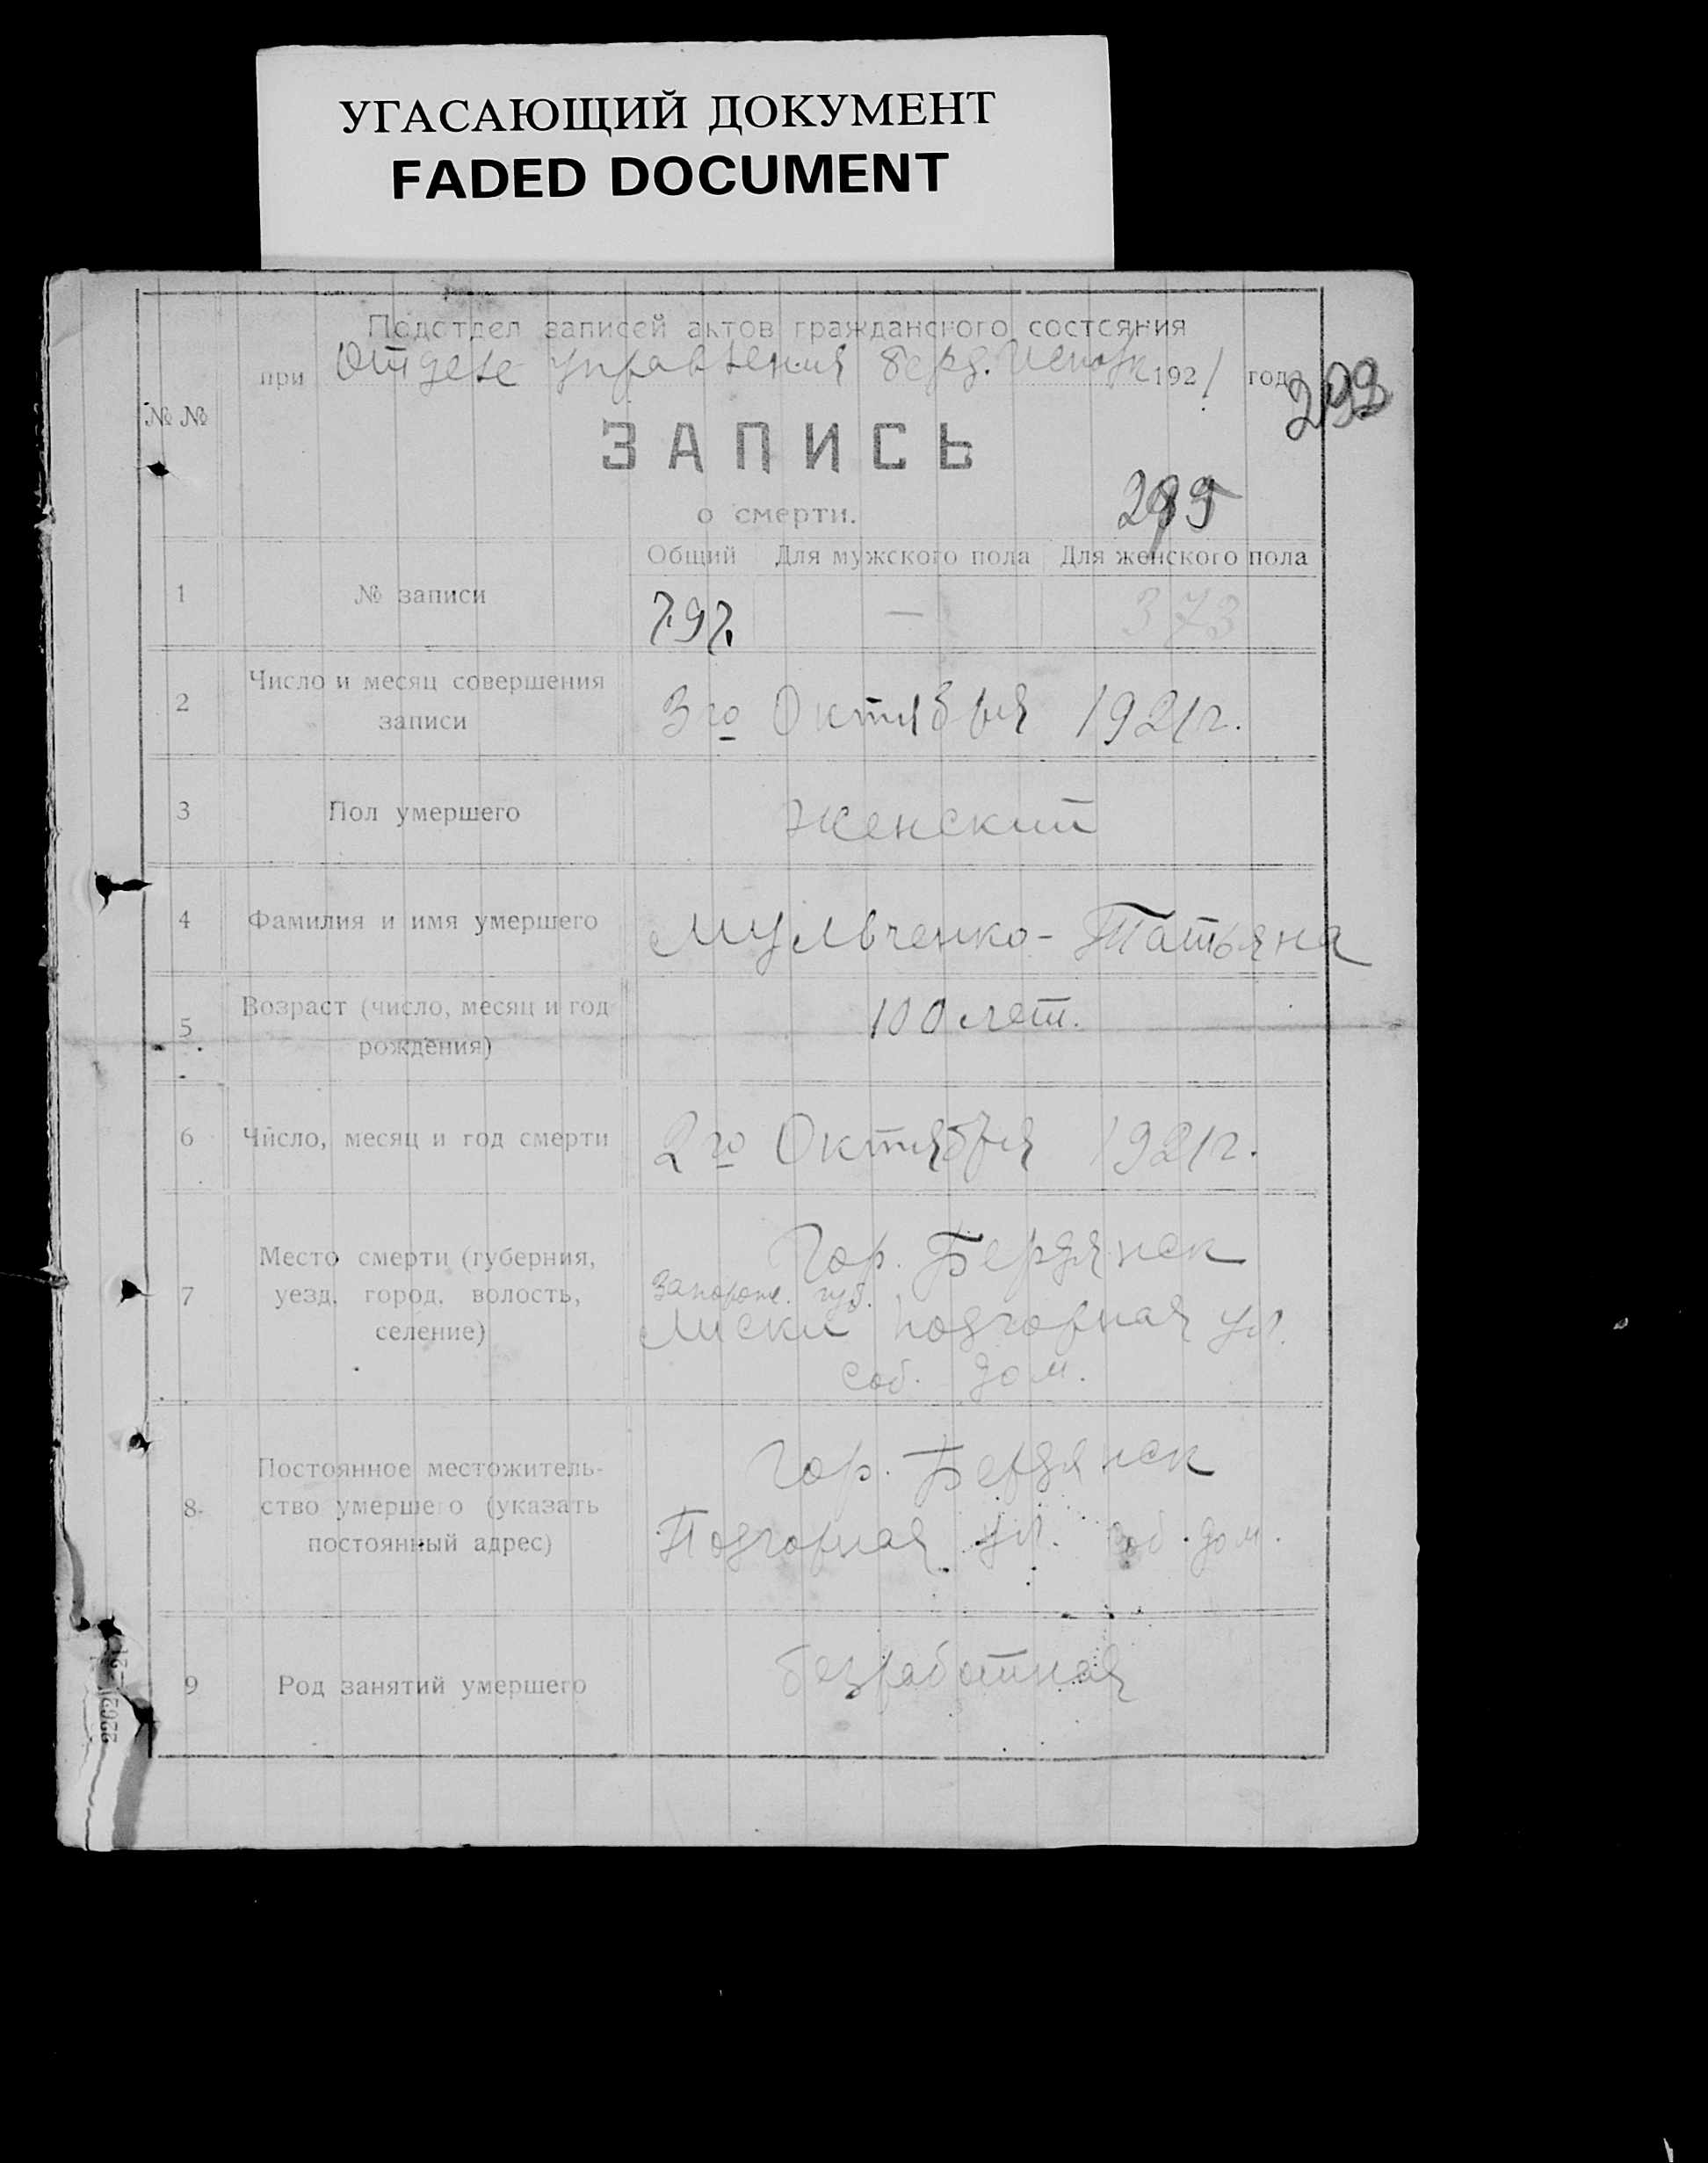 УГАСАЮЩИЙ ДОКУМЕНТ
FADED DOCUMENT
Подотдел записей актов гражданского состояния
при Отделе управления Берд. Исполк 1921 года
299
№ №
ЗАПИСЬ
о смерти.
295
Общий Для мужского пола Для женского пола
1 № записи 797. — 373
2 Число и месяц совершения
записи 3го Октября 1921г.
3 Пол умершего Женский
4 Фамилия и имя умершего Мульченко - Татьяна
5 Возраст (число, месяц и год
рождения) 100 лет.
6 Число, месяц и год смерти 2го Октября 1921г.
7 Место смерти (губерния,
уезд, город, волость,
селение) Гор. Бердянск
Запорож. губ.
Лиски Подгорная ул.
соб. дом.
8 Постоянное местожитель-
ство умершего (указать
постоянный адрес) Гор. Бердянск
Подгорная ул. соб. дом.
9 Род занятий умершего безработная